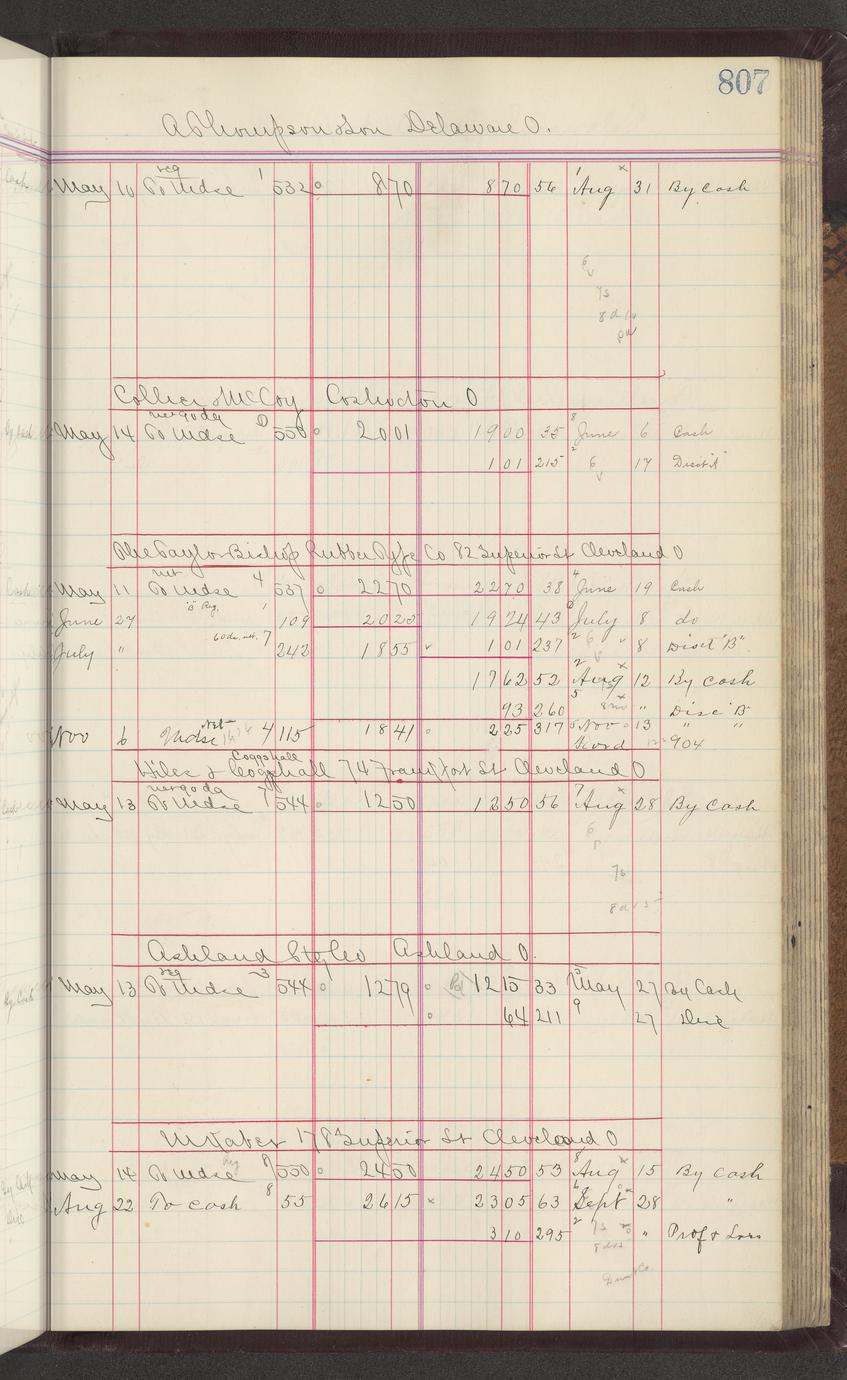 807
A Thompson & Son Delaware O.
reg
May 10 To Mdse 1 532 8 70 8 70 56 1 Aug x 31 By Cash
6
7s
Collier & McCoy Coshocton O
May 14 To Mdse 550 20 01 19 00 35 8 June 6 Cash
1 01 215 2 6 17 Disct "A"
The Taylor Bishop Rubber Type Co 82 Superior St Cleveland O
net
May 11 To Mdse 4 537 22 70 22 70 38 4 June 19 Cash
"B" Reg. 1
June 27 109 20 25 19 24 43 July 8 do
60 ds. net. 7
July " 242 18 55 1 01 237 2 6 8 Disct "B"
17 62 52 2 Aug x 12 By Cash
93 260 5 " Disc "B"
Net
Nov 6 Mdse 4 115 18 41 2 25 317 5 Nov 13 " "
Ford 904
Coggshall
Hiles & Coggshall 74 Frankfort St Cleveland O
May 13 To Mdse 7 544 12 50 12 50 56 7 Aug x 28 By Cash
6
7s
Ashland Stg Co Ashland O.
reg
May 13 To Mdse 3 544 12 79 12 15 33 5 May 27 By Cash
64 211 9 27 Disc
M Faber 178 Superior St Cleveland O
Reg
May 14 To Mdse 9 550 24 50 24 50 53 8 Aug x 15 By Cash
Aug 22 To Cash 8 55 26 15 x 23 05 63 6 Sept x 28 "
3 10 295 2 7s " Prof & Loss